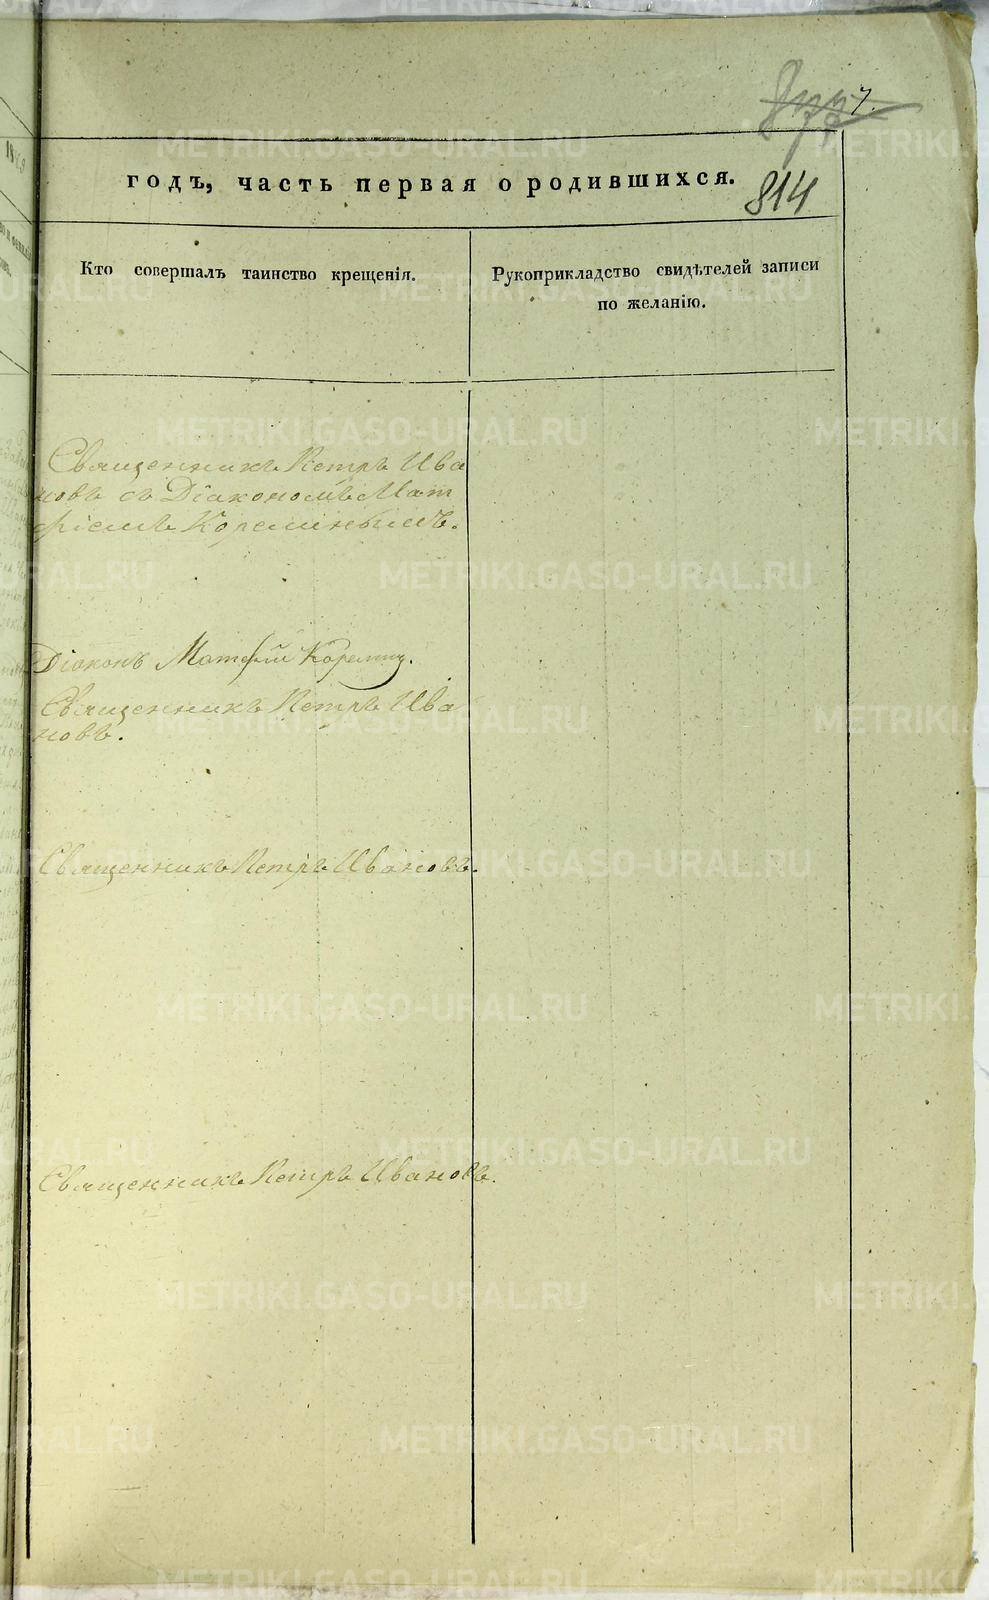 7.
годъ, часть первая о родившихся.
814
Кто совершалъ таинство крещенія.
Рукоприкладство свидѣтелей записи
по желанію.
Священникъ Петръ Ива
новъ съ Діакономъ Мат
фіемъ Кореминымъ.
Діаконъ Матфій Кореминъ.
Священникъ Петръ Ива
новъ.
Священникъ Петръ Ивановъ.
Священникъ Петръ Ивановъ.
METRIKI.GASO-URAL.RU